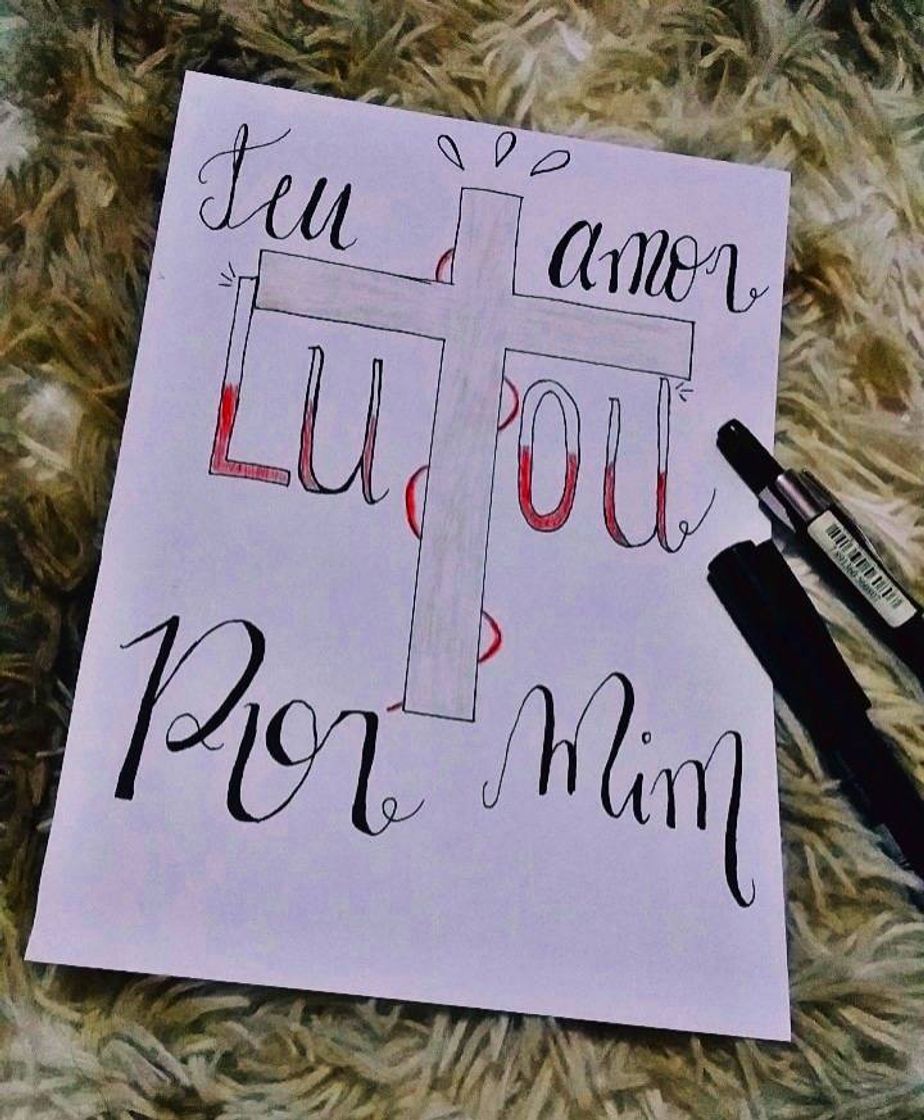 Teu amor
LutOU
Por Mim